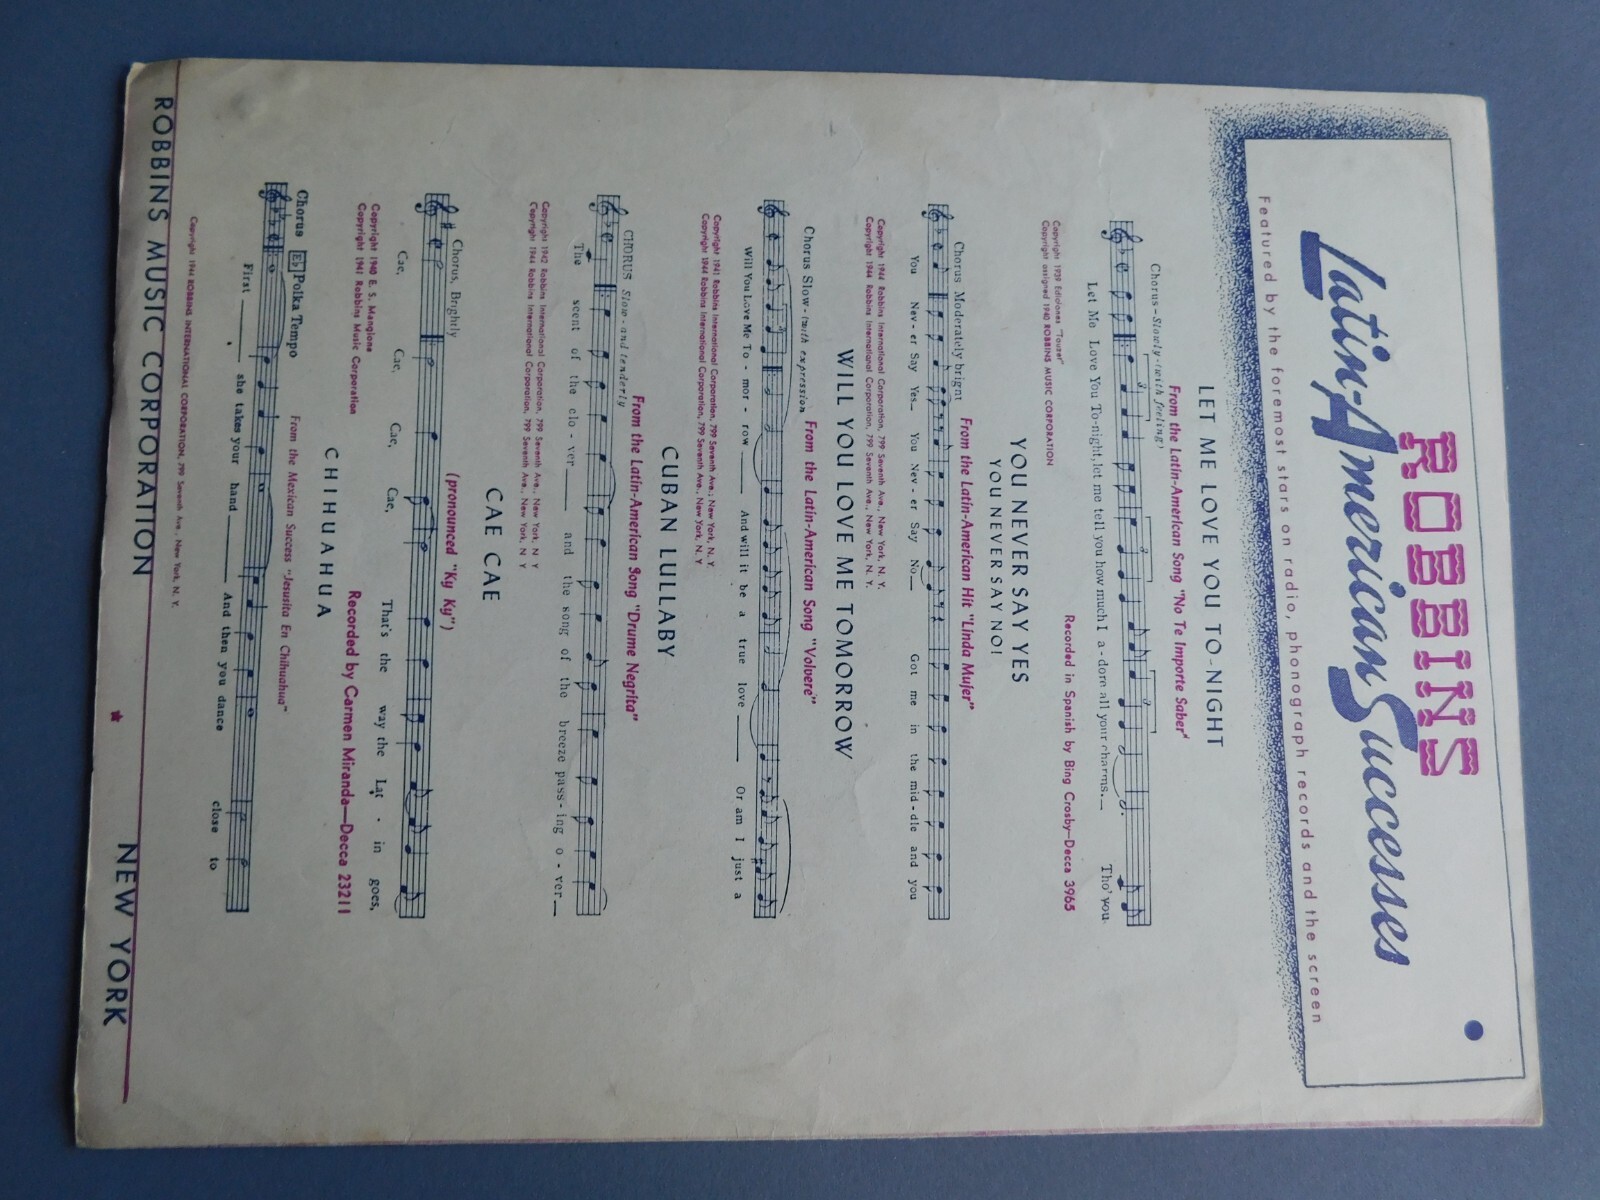 ROBBINS
Latin-American Successes
Featured by the foremost stars on radio, phonograph records and the screen
LET ME LOVE YOU TO-NIGHT
From the Latin-American Song "No Te Importe Saber"
Chorus-Slowly-(with feeling)
3 3 3 3 3
Let Me Love You To-night, let me tell you how much I a-dore all your charms. Tho' you
Copyright 1939 Ediciones "Touzet"
Copyright assigned 1940 ROBBINS MUSIC CORPORATION
Recorded in Spanish by Bing Crosby—Decca 3965
YOU NEVER SAY YES
YOU NEVER SAY NO!
From the Latin-American Hit "Linda Mujer"
Chorus Moderately bright
You Nev-er Say Yes You Nev-er Say No Got me in the mid-dle and you
Copyright 1944 Robbins International Corporation, 799 Seventh Ave., New York, N. Y.
Copyright 1944 Robbins International Corporation, 799 Seventh Ave., New York, N. Y.
WILL YOU LOVE ME TOMORROW
From the Latin-American Song "Volvere"
Chorus Slow-(with expression)
Will You Love Me To-mor-row And will it be a true love Or am I just a
Copyright 1941 Robbins International Corporation, 799 Seventh Ave.; New York, N. Y.
Copyright 1944 Robbins International Corporation, 799 Seventh Ave., New York, N. Y.
CUBAN LULLABY
From the Latin-American Song "Drume Negrita"
CHORUS Slow-and tenderly
The scent of the clo-ver and the song of the breeze pass-ing o-ver
Copyright 1942 Robbins International Corporation, 799 Seventh Ave., New York, N Y
Copyright 1944 Robbins International Corporation, 799 Seventh Ave., New York, N Y
CAE CAE
(pronounced "Ky Ky")
Chorus, Brightly
Cae, Cae, Cae, Cae, That's the way the Lat-in goes,
Copyright 1940 E. S. Mangione
Copyright 1941 Robbins Music Corporation
Recorded by Carmen Miranda—Decca 23211
CHIHUAHUA
From the Mexican Success "Jesusita En Chihuahua"
Chorus Eb Polka Tempo
First she takes your hand And then you dance close to
Copyright 1944 ROBBINS INTERNATIONAL CORPORATION, 799 Seventh Ave., New York, N. Y.
ROBBINS MUSIC CORPORATION ★ NEW YORK